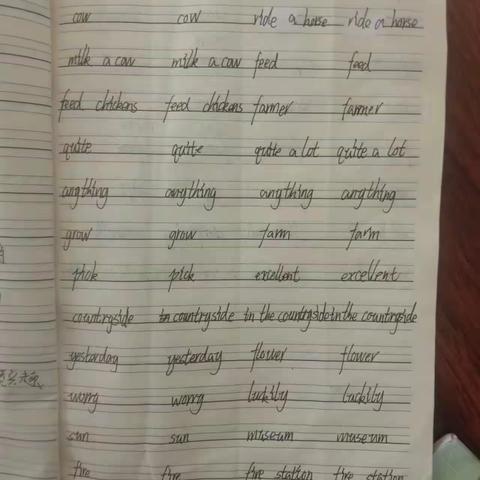 cow cow ride a horse ride a horse
milk a cow milk a cow feed feed
feed chickens feed chickens farmer farmer
quite quite quite a lot quite a lot
anything anything anything anything
grow grow farm farm
pick pick excellent excellent
countryside countryside in the countryside in the countryside
yesterday yesterday flower flower
worry worry luckily luckily
sun sun museum museum
fire fire fire station fire station